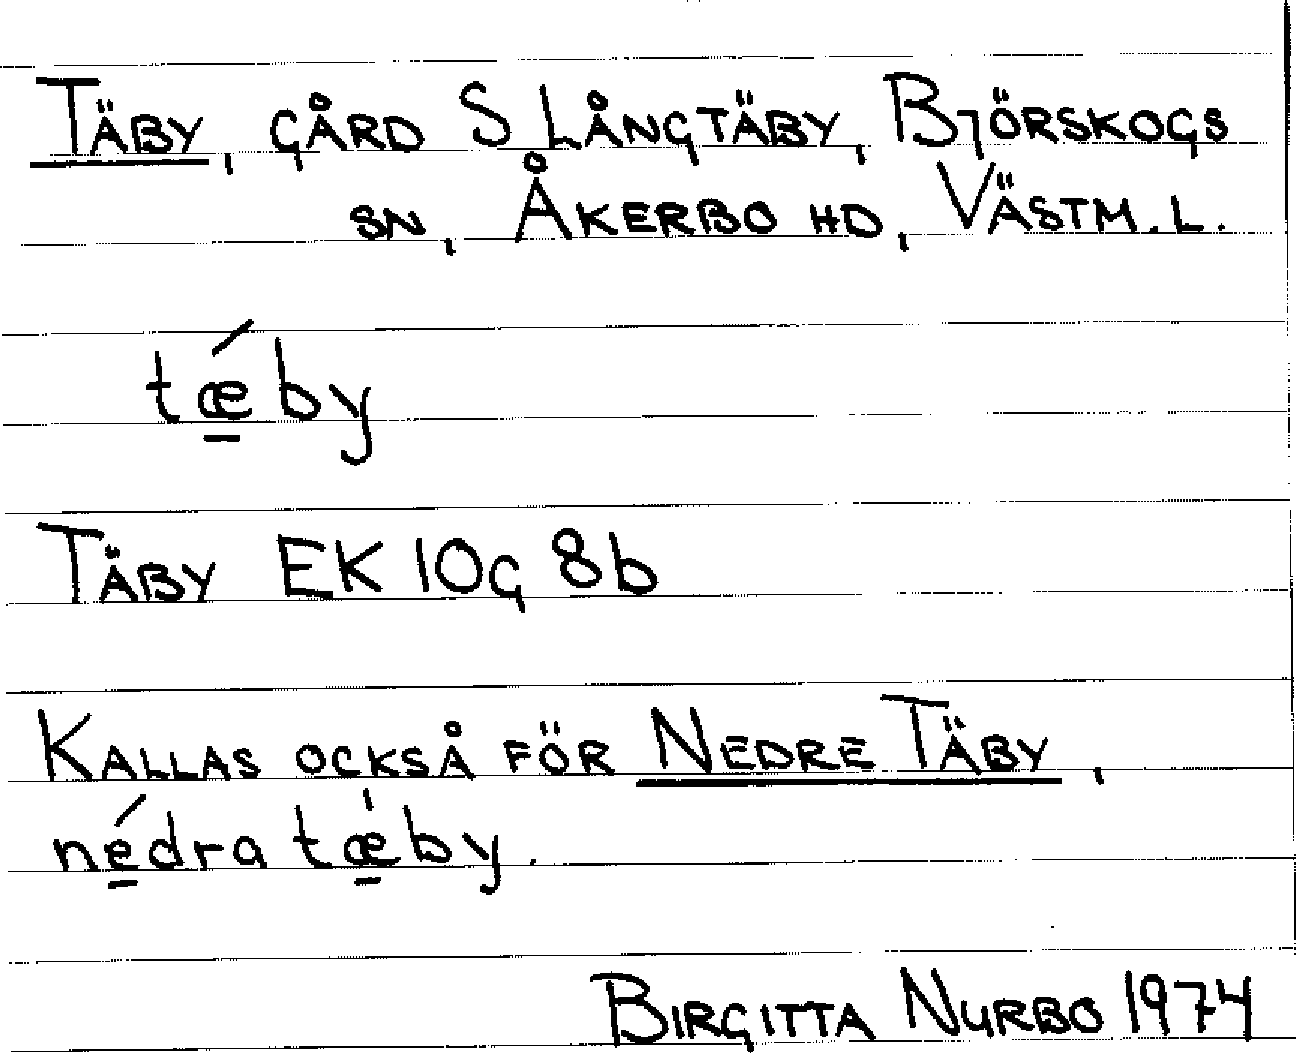 TÄBY, GÅRD S LÅNGTÄBY, BJÖRSKOGS
SN, ÅKERBO HD, VÄSTM. L.
tǽ̱by
TÄBY EK 10G 8b
KALLAS OCKSÅ FÖR NEDRE TÄBY,
né̱dra tæ̱̍by.
BIRGITTA NURBO 1974